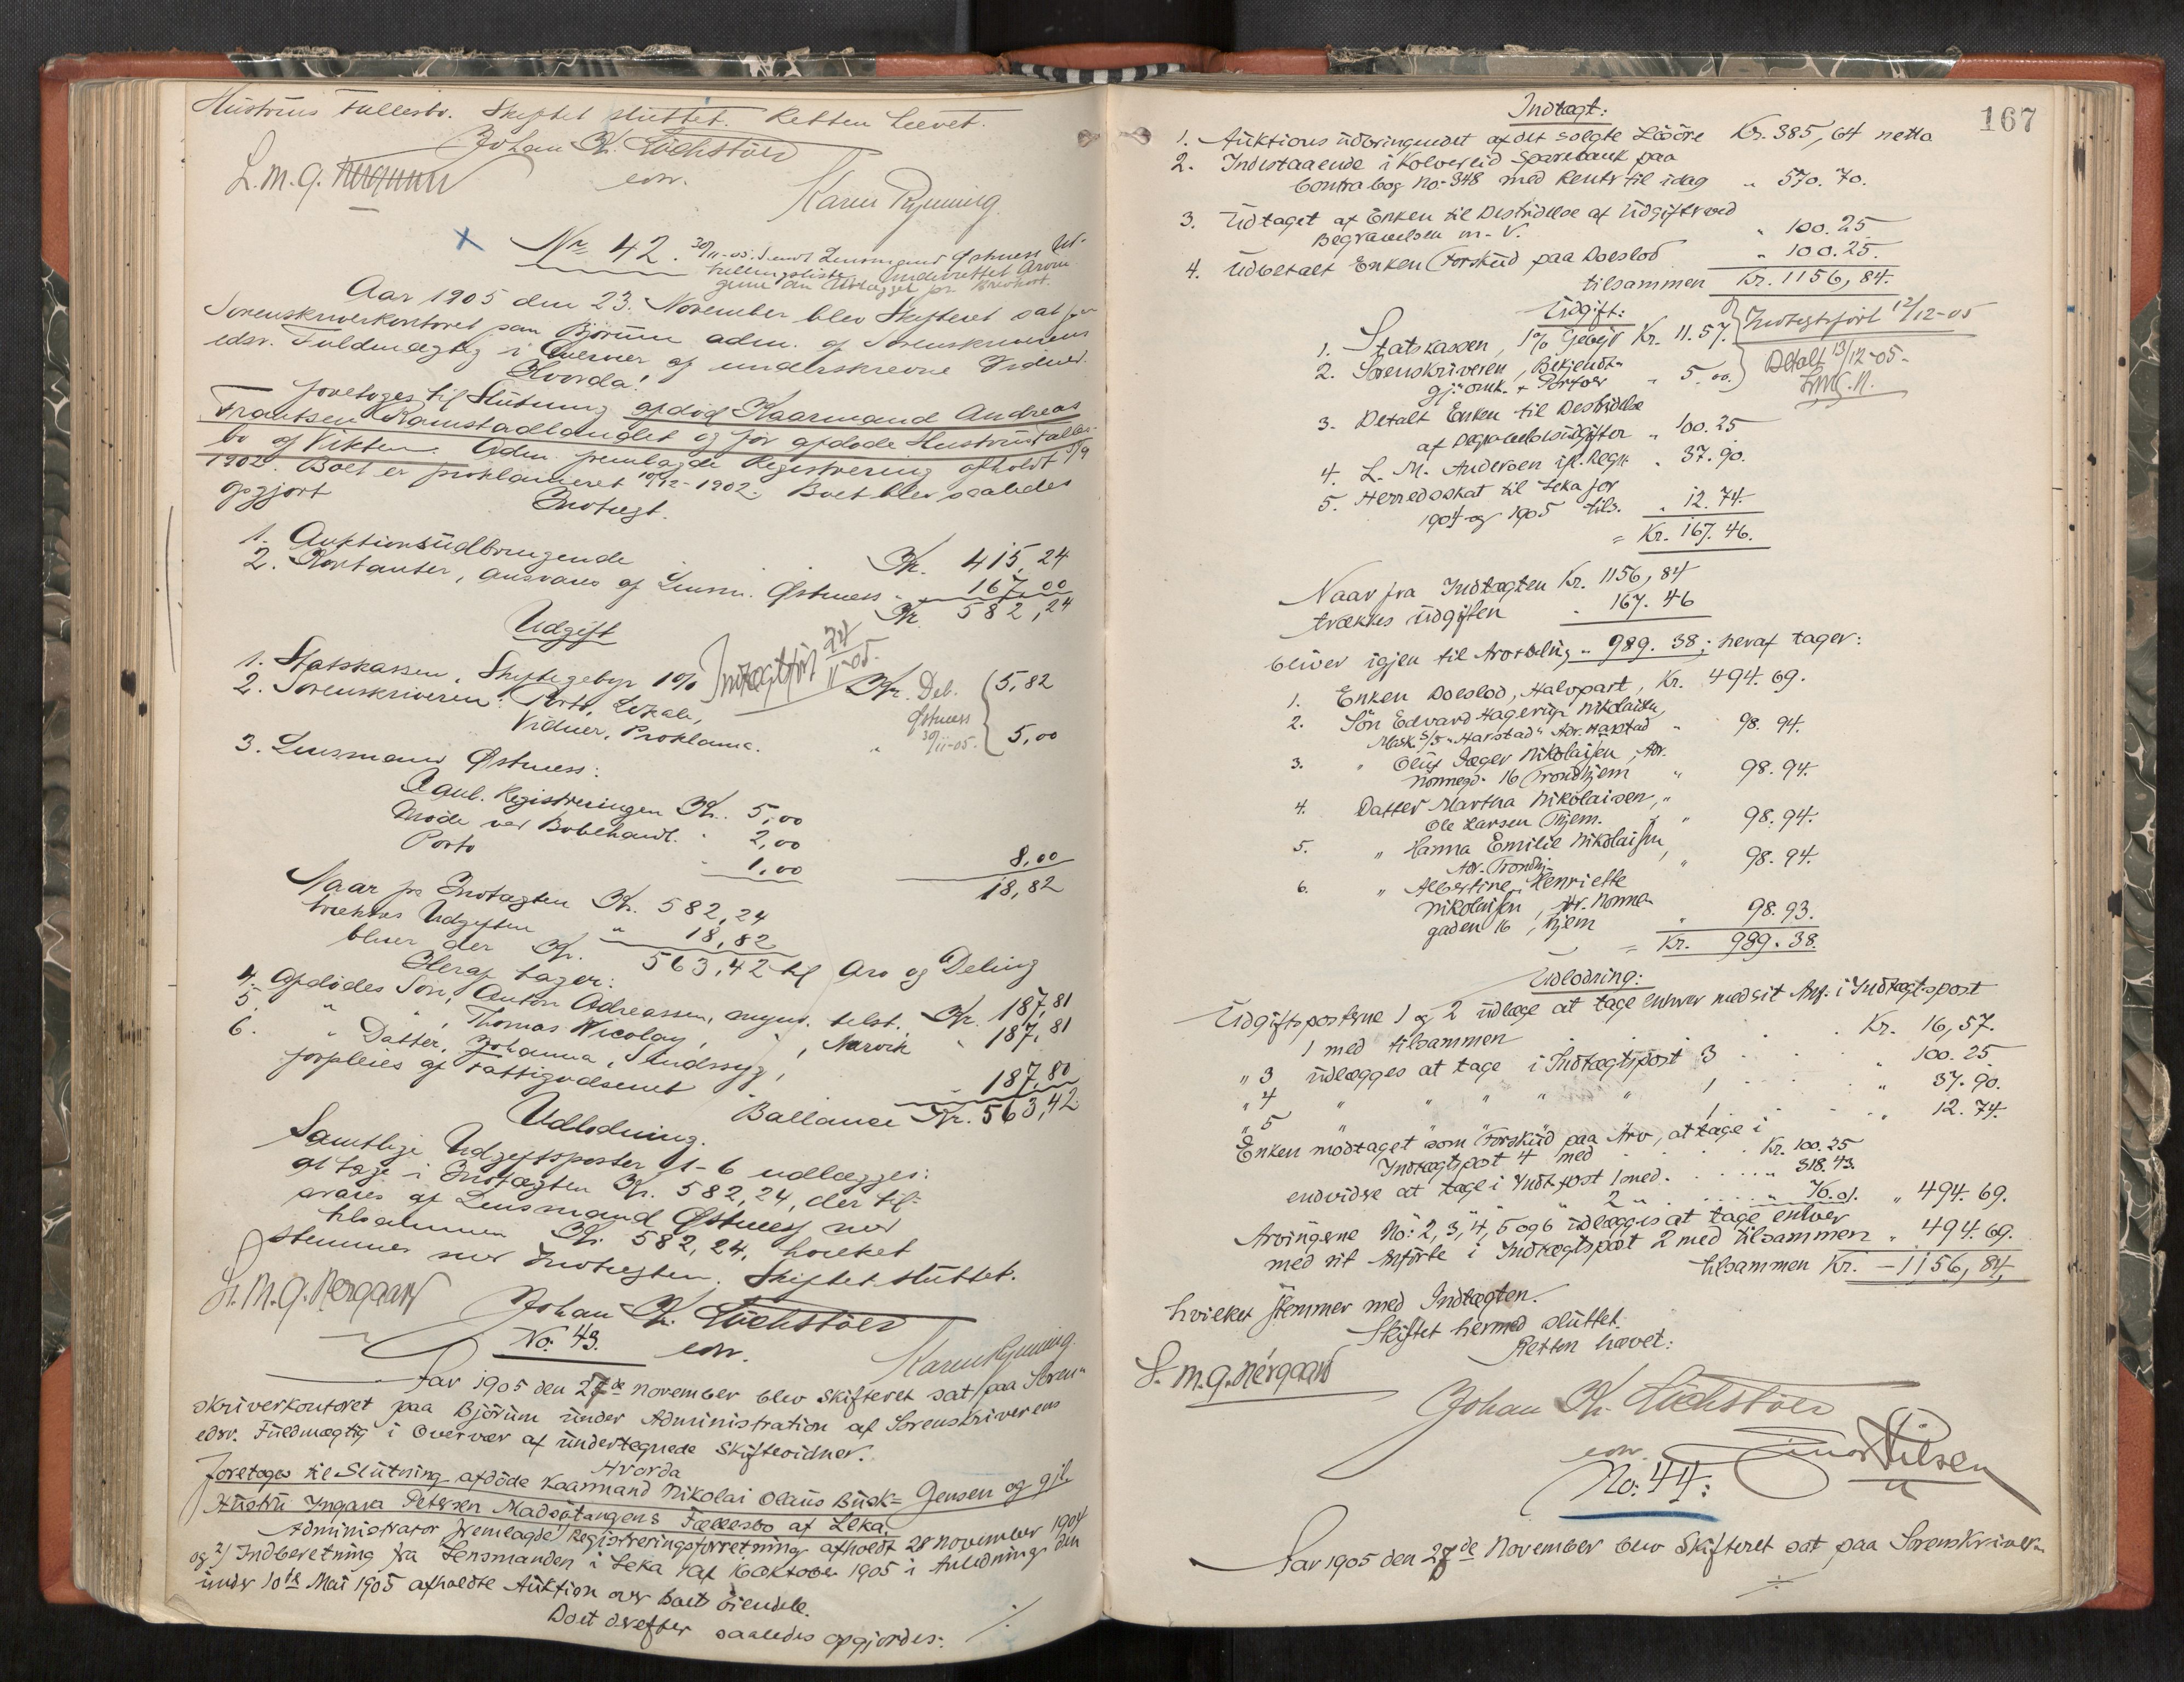 Hustrus Fællesbo. Skiftet sluttet. Retten hævet.
Johan Kr. Lüchstöer
edsv.
L. M. G. Nergaard
Karen Rynning
Nr. 42. 30/11-05. Lensmand Østness
underrettet
Aar 1905 den 23. November blev Skifteret sat paa
Sorenskriverkontoret paa Björum adm. af Sorenskriverens
edsv. Fuldmægtig i Overvær af underskrevne Vidner.
Hvorda!
foretoges til Slutning afdöd Kaarmand Andreas
Frantsen Ramstadlandet og för afdöde Hustrus Fælles-
bo af Vikten. Adm. fremlagde Registrering afholdt 5/9
1902. Boet er proklameret 10/12-1902. Boet blev saaledes
opgjort
Indtægt.
1. Auktionsudbringende Kr. 415,24
2. Kontanter, ansvares af Lensm. Østness " 167,00
Kr. 582,24
Udgift
1. Statskassen, Skiftegebyr 1% Indtægtsfört 24/11-05. Kr. 5,82
2. Sorenskriveren: Porto, Lokale, Bet. Østness
Vidner, Proklama. " 30/11-05. 5,00
3. Lensmand Østness:
Registreringen Kr. 5,00
Möde ved Bobehandl. " 2,00
Porto " 1,00 8,00
18,82
Naar fra Indtægten Kr. 582,24
trækkes Udgiften " 18,82
bliver der Kr. 563,42 til Arv og Deling
Heraf tager:
4. Afdödes Sön, Anton Andreassen, mynd. Kr. 187,81
5. " " , Thomas Nicolay, " , Narvik " 187,81
6. " Datter, Johanna, Sindssyg,
forpleies af Fattigvæsenet " 187,80
Ballance Kr. 563,42
Udlodning.
Samtlige Udgiftsposter 1-6 udlægges:
at tage i Indtægten Kr. 582,24, der til-
svares af Lensmand Østness med
tilsammen Kr. 582,24, hvilket
stemmer med Indtægten. Skiftet sluttet.
L. M. G. Nergaard
Johan Kr. Lüchstöer
edsv.
Karen Rynning.
No. 43.
Aar 1905 den 27de November blev Skifteret sat paa Soren-
skriverkontoret paa Björum under Administration af Sorenskriverens
edsv. Fuldmægtig i Overvær af undertegnede Skiftevidner.
Hvorda
foretoges til Slutning afdöde Kaarmand Nikolai Olaus Buck= Jensen og gjl.
Hustru Ingara Petersen Madsötangens Fællesbo af Leka.
Administrator fremlagde 1) Registreringsforretning afholdt 28 November 1904
og 2) Indberetning fra Lensmanden i Leka af 16 Oktober 1905 i Anledning den
under 10de Mai 1905 afholdte Auktion over Boets Eiendele.
Boet derefter saaledes opgjordes:
./.
167
Indtægt:
1. Auktions udbringendet af det solgte Lösöre Kr. 385,64 netto
2. Indestaaende i Kolvereid Sparebank paa
Contrabog No. 348 med Renter til idag " 570.70.
3. Udtaget af Enken til Bestridelse af Udgifter ved
Begravelsen m. V. " 100.25
4. Udbetalt Enken Forskud paa Boeslod " 100.25.
tilsammen Kr. 1156,84.
Udgift:
1. Statskassen, 1% Gebyr Kr. 11.57. Indtægtsfört 12/12-05
2. Sorenskriveren, Bekjendt-
gj. omk. + Portoer " 5.00. Betalt 13/12-05.
L.M.G.N.
3. Betalt Enken til Bestridelse
af Begravelsesudgifter " 100.25
4. L. M. Andersen ifl. Regn. " 37.90.
5. Herredsskat til Leka for
1904 og 1905 tils. " 12.74.
= Kr. 167.46.
Naar fra Indtægten Kr. 1156,84
trækkes Udgiften " 167.46
bliver igjen til Arvedeling " 989.38; heraf tager:
1. Enken Boeslod, Halvpart, Kr. 494.69.
2. Sön Edvard Hagerup Nikolaisen,
Mask. S/S "Harstad" Adr. Harstad " 98.94.
3. " Oluf Jæger Nikolaisen, Adr.
Nonnegd. 16 Trondhjem " 98.94.
4. Datter Martha Nikolaisen, "
Ole Larsen Thjem. " 98.94.
5. " Hanna Emilie Nikolaisen,
Adr. Trondhj. " 98.94.
6. " Albertine Henriette
Nikolaisen, Adr. Nonne-
gaden 16, Thjem " 98.93.
= Kr. 989.38.
Udlodning:
Udgiftsposterne 1 og 2 udlæge at tage enhver med sit Anf. i Indtægtspost
1 med tilsammen Kr. 16,57.
" 3 udlægges at tage i Indtægtspost 3 " 100.25
" 4 " " " " " 1 " 37.90.
" 5 " " " " " 1 " 12.74.
Enken modtaget som Forskud paa Arv, at tage i
Indtægtspost 4 med Kr. 100.25
endvidre at tage i Indt. post 1 med " 318.43.
2 " " 76.01. " 494.69.
Arvingerne No. 2, 3, 4, 5 og 6 udlægges at tage enhver
med sit Anförte i Indtægtspost 2 med tilsammen " 494.69.
tilsammen Kr. 1156,84,
hvilket stemmer med Indtægten.
Skiftet hermed sluttet.
Retten hævet:
L. M. G. Nergaard
Johan Kr. Lüchstöer
edsv.
Nilsen
No. 44:
Aar 1905 den 27de November blev Skifteret sat paa Sorenskriver-
./.